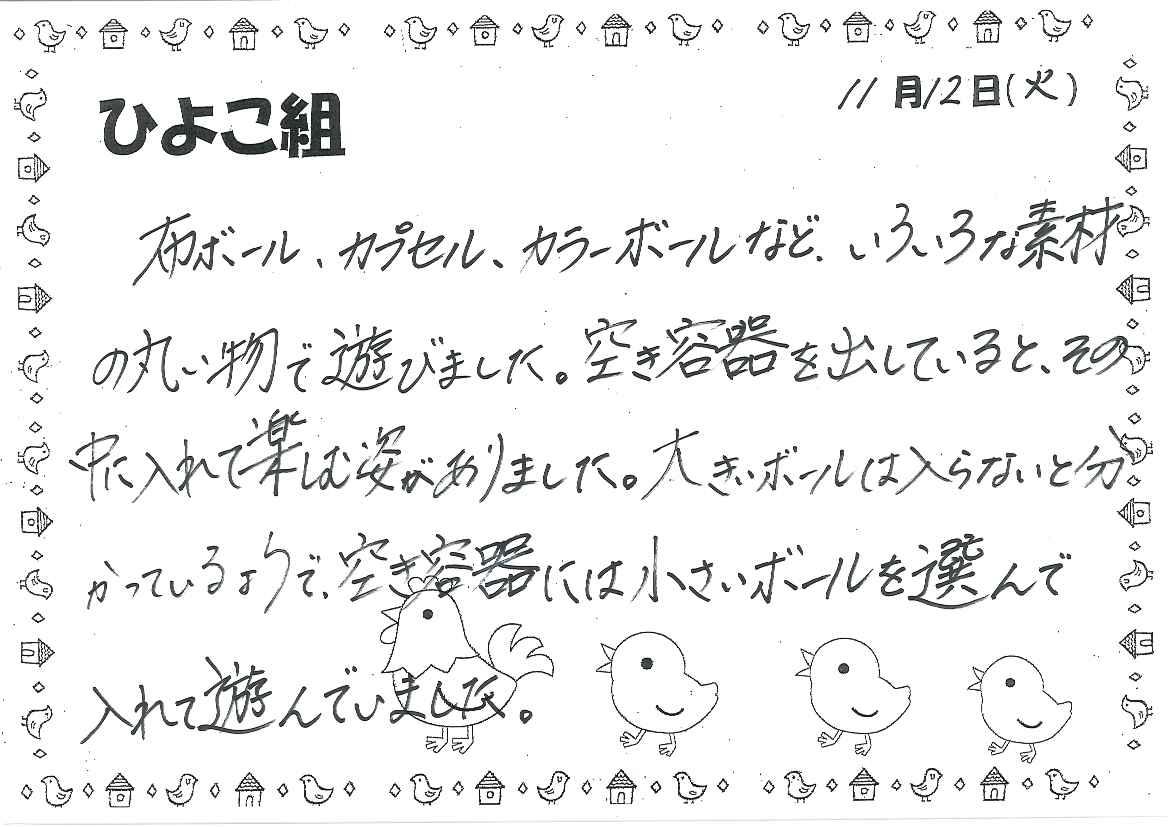 11月12日(火)
ひよこ組
布ボール、カプセル、カラーボールなど、いろいろな素材
の丸い物で遊びました。空き容器を出していると、その
中に入れて楽しむ姿がありました。大きいボールは入らないと分
かっているようで、空き容器には小さいボールを選んで
入れて遊んでいました。